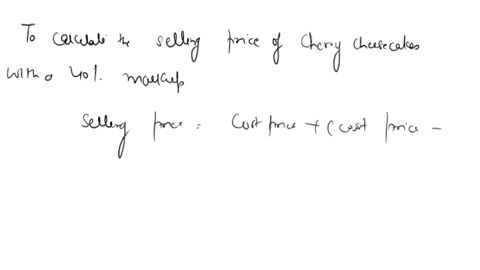 To calculate the selling price of Cherry cheesecakes
with a 40%. markup
Selling price = Cost price + ( cost price -